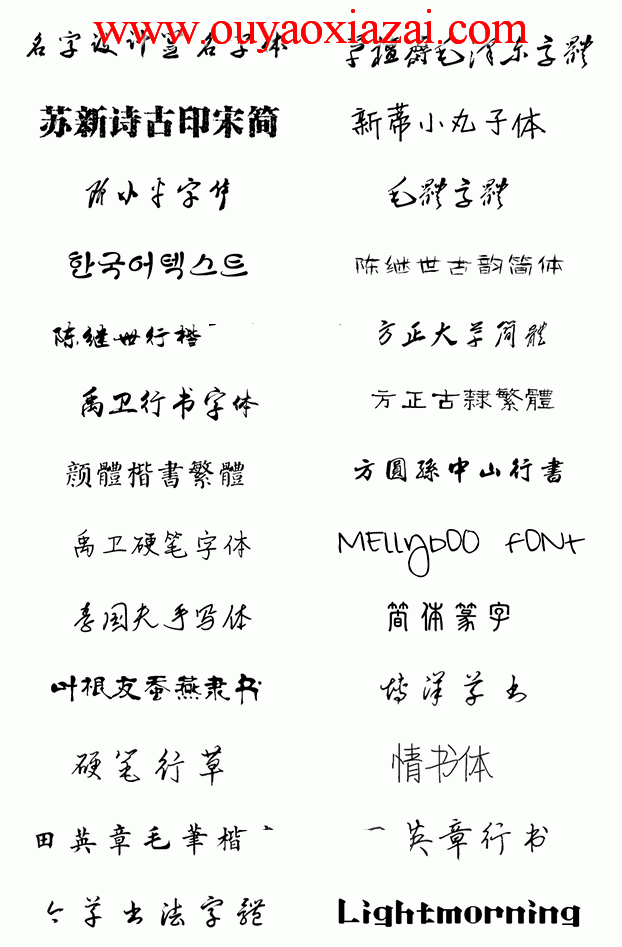 www.ouyaoxiazai.com
名字设计签名字体
草檀斋毛泽东字體
苏新诗古印宋简
新蒂小丸子体
毛體字體
한국어텍스트
陈继世古韵简体
陈继世行楷
方正大草简體
禹卫行书字体
方正古隸繁體
颜體楷書繁體
方圓孫中山行書
禹卫硬笔字体
MEllybOO fONt
李国夫手写体
简体篆字
叶根友蚕燕隶书
硬笔行草
情书体
田英章毛筆楷
英章行书
今草书法字體
Lightmorning